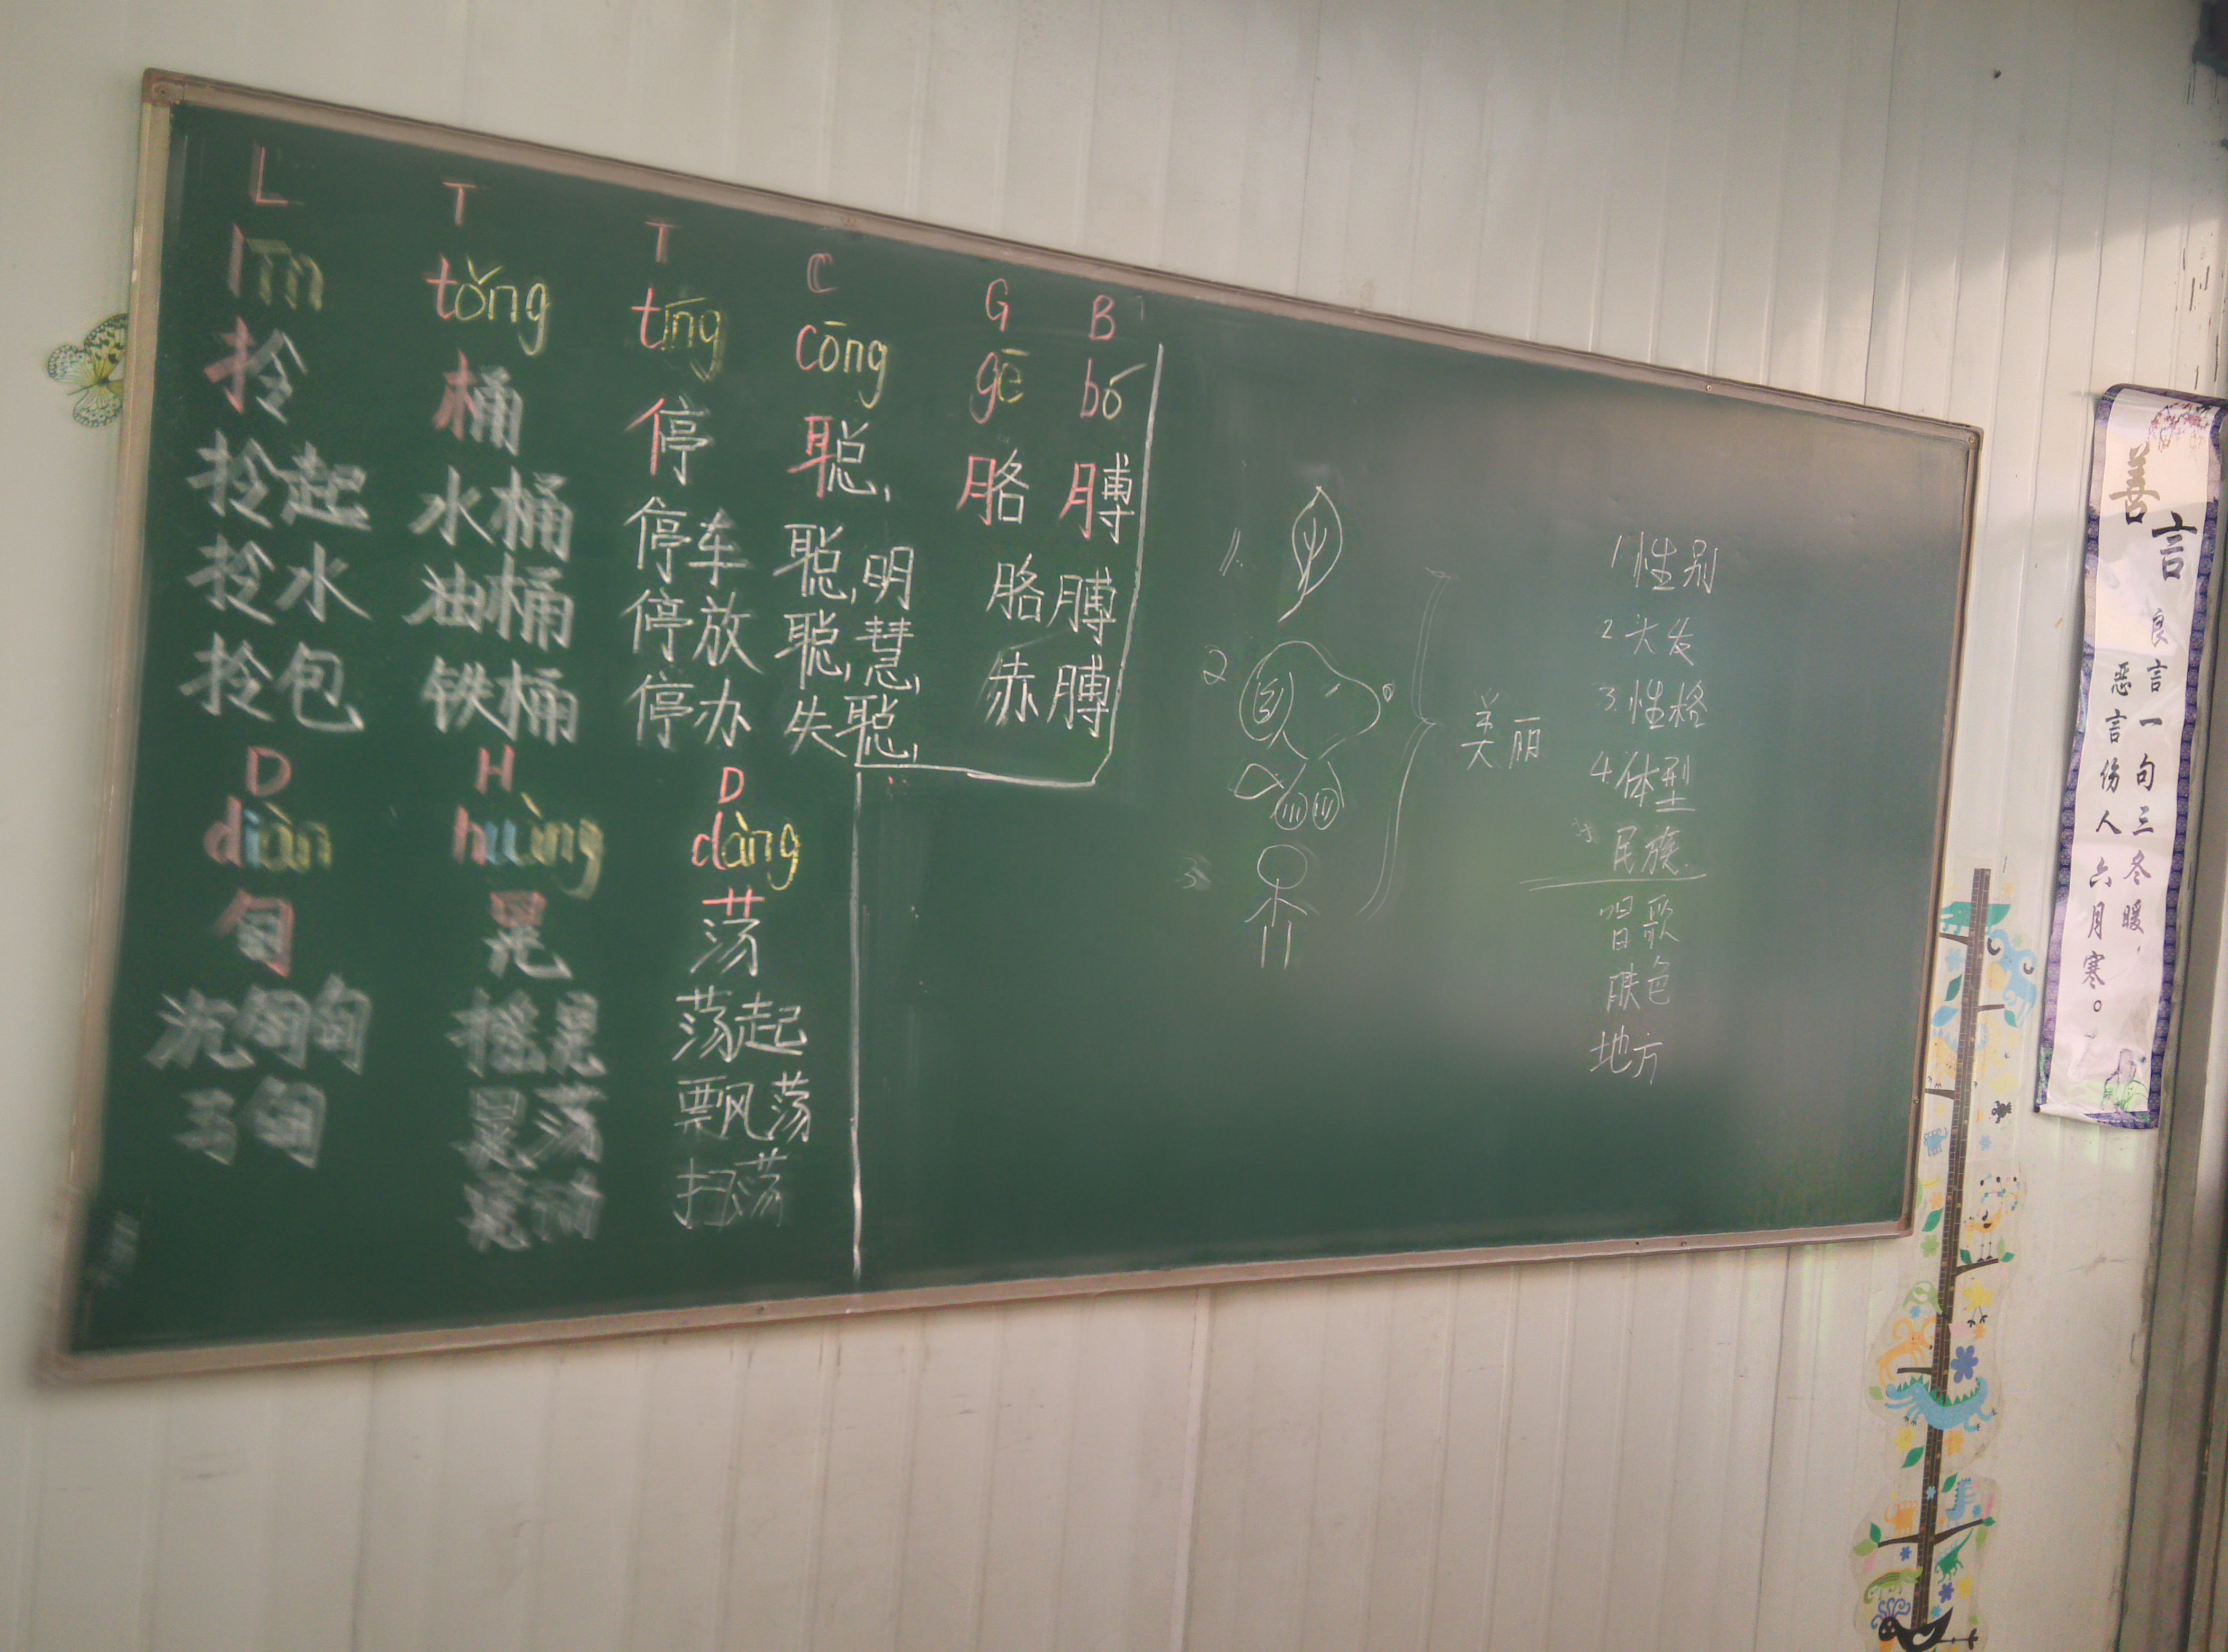 L
līn
拎
拎起
拎水
拎包
T
tǒng
桶
水桶
油桶
铁桶
T
tíng
停
停车
停放
停办
C
cōng
聪
聪明
聪慧
失聪
G
gē
胳
B
bó
膊
胳膊
赤膊
D
diàn
甸
沉甸甸
甸
H
huàng
晃
摇晃
晃荡
晃动
D
dàng
荡
荡起
飘荡
扫荡
1.
2
3
美丽
1.性别
2.头发
3.性格
4.体型
民族.
唱歌
肤色
地方
善言
良言一句三冬暖，
恶言伤人六月寒。